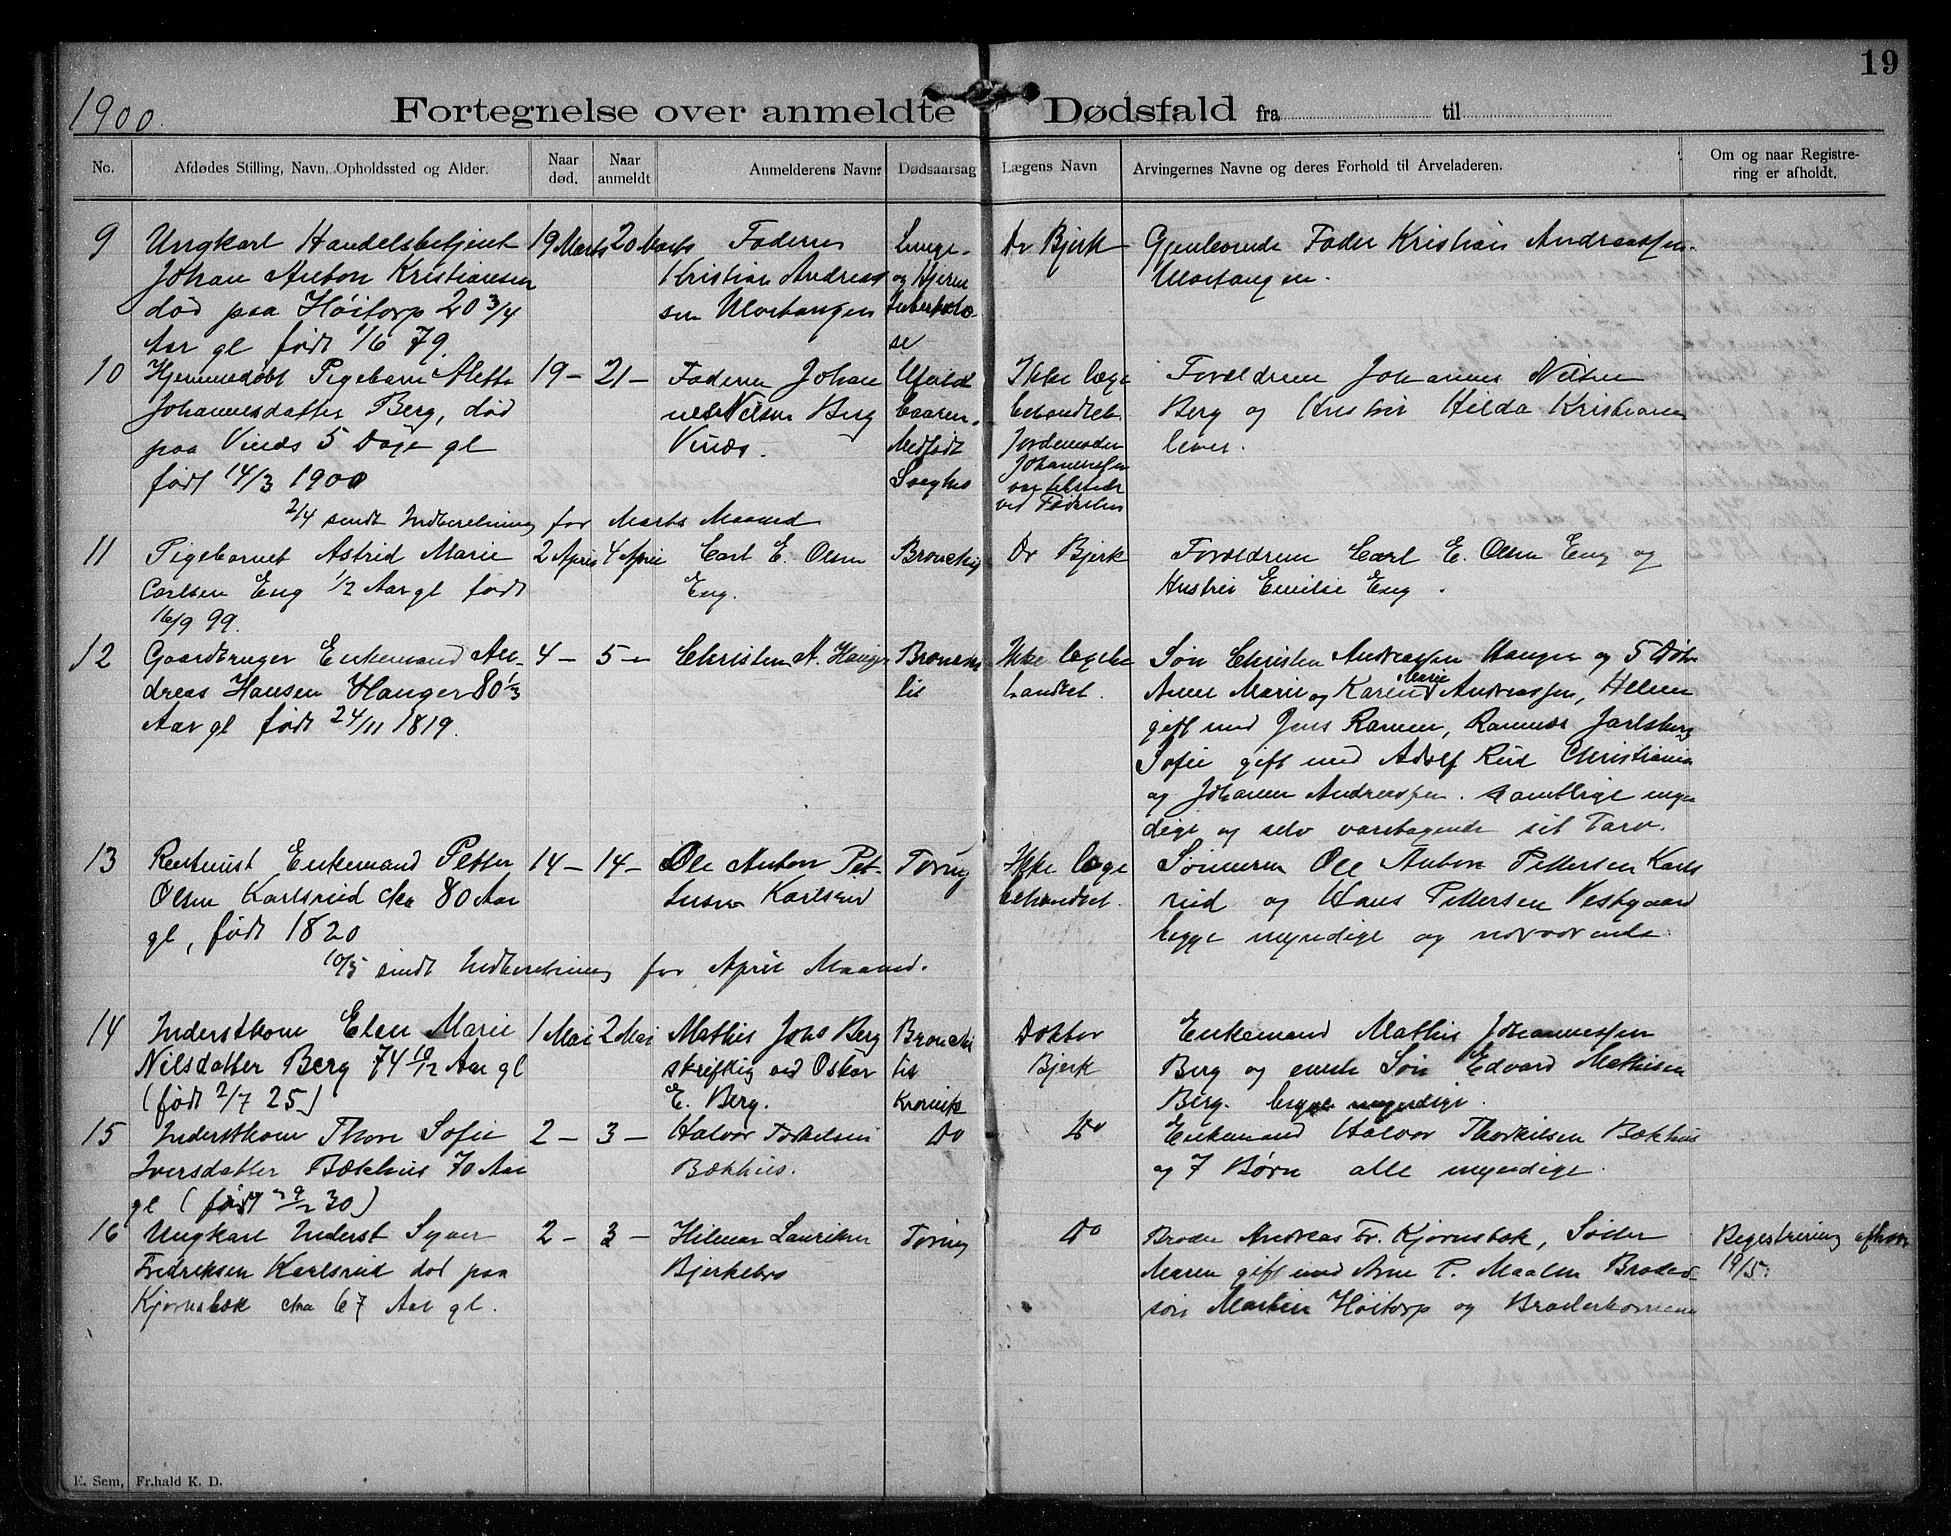 19
1900.
Fortegnelse over anmeldte Dødsfald fra til
No.
Afdødes Stilling, Navn, Opholdssted og Alder.
Naar død.
Naar anmeldt
Anmelderens Navn.
Dødsaarsag
Lægens Navn
Arvingernes Navne og deres Forhold til Arveladeren.
Om og naar Registrering er afholdt.
9 Ungkarl Handelsbetjent 19 Marts 20 Marts Faderen Lunge- Dr Bjerk Gjenlevende Fader Kristian Andreassen
Johan Anton Kristiansen Kristian Andreas og Hjerne
død paa Høitorp 20 3/4 sen
Aar gl født 1/6 79. se
10 Hjemmedøbt Pigebarn 19 — 21 — Faderen Johan Ikke læge Forældrene Johannes Nilsen
Johannesdatter Berg, død nes Nilsen Berg behandlet Berg og Hustru Hilda Kristiansen
paa Vinds 5 Dage gl Vinds. Medfødt Jordemoder lever.
født 14/3 1900 Svaghed Johannesen
var tilstede
ved Fødselen
2/4 sendt Indberetning for Marts Maaned
11 Pigebarnet Astrid Marie 2 April 4 April Carl E. Olsen Dr Bjerk Forældrene Carl E. Olsen Eng og
Carlsen Eng 1/2 Aar gl født Eng. Hustru Emilie Eng.
16/9 99.
12 Gaardbruger Enkemand An- 4 — 5 — Christen A. Hanger Bronchi Ikke lægebe Søn Christen Andreassen Hanger og 5 Døtre
dreas Hansen Hanger 80 1/3 tis handlet. Anne Marie og Karen Marie Andreassen, Helene
Aar gl født 24/11 1819. gift med Jens Ramnes Jarlsberg
Sofie gift med Adolf Rud Christiania
og Johanne Andreassen. samtlige myn
dige og selv varetagende sit Tarv.
13 Enkemand Petter 14 — 14 — Ole Anton Pet- Tæring Ikke læge Sønnerne Ole Anton Pettersen Karls
Olsen Karlsrud cka 80 Aar tersen Karlsrud behandlet. rud og Hans Pettersen Vestgaard
gl, født 1820 begge myndige og nærværende
10/5 sendt Indberetning for April Maaned.
14 Inderstkone Elen Marie 1 Mai 2 Mai Mathis Johs Berg Bronchi Doktor Enkemand Mathis Johannessen
Nilsdatter Berg 74 10/12 Aar gl skriftlig ved Oskar tis Bjerk Berg og eneste Søn Edvard Mathisen
(født 2/7 25) E. Berg. Kronisk Berg. begge myndige.
15 Inderstkone Thore Sofie 2 — 3 — Halvor Torkelsen Do Do Enkemand Halvor Thorkilsen Bækhus
Iversdatter Bækhus 70 Aar Bækhus. og 7 Børn alle myndige.
gl (født 30)
16 Ungkarl Inderst Syver 2 — 3 — Hilmar Lauritsen Tæring Do Broder Andreas Fr. Kjørnsbæk, Søster Registrering afholdt
Fredriksen Karlsrud død paa Bjerkebæk Maren gift med Arne P. Maalen Broder 19/5.
Kjørnsbæk cka 67 Aar gl. søn Martin Høitorp og Broderbørnene
E. Sem, Fr.hald K. D.